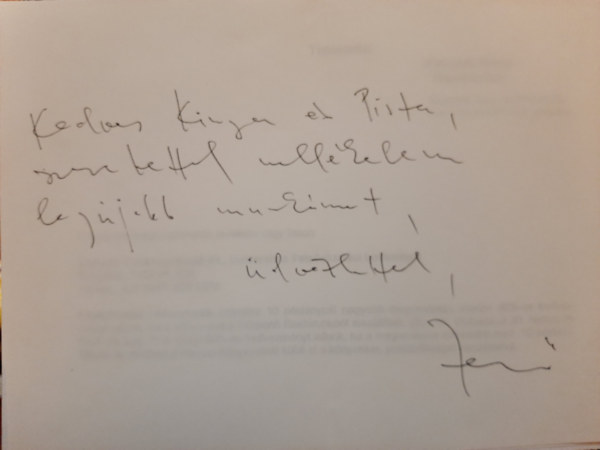 Kedves Kinga és Pista,
szeretettel mellékelem
legújabb munkámat,
üdvözlettel,
Jenő